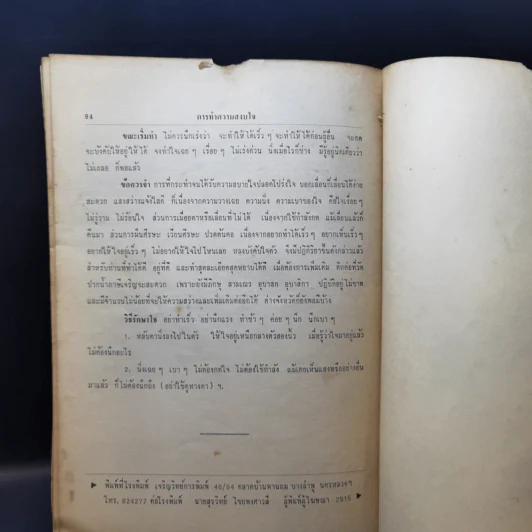 84
การทำความสงบใจ
ขณะเริ่มทำ ไม่ควรนึกเร่งว่า จะทำให้ได้เร็ว ๆ จะทำให้ได้ก่อนผู้อื่น
จะบังคับให้อยู่ให้ได้ จงทำใจเฉย ๆ เรื่อย ๆ ไม่เร่งด่วน นิ่งเมื่อไรก็ช่าง มีรู้อยู่นิดเดียวว่า
ไม่เผลอ ก็พอแล้ว
ข้อควรจำ การที่กระทำจนได้รับความสบายใจปลอดโปร่งใจ
สะดวก แสงสว่างแจ้งใสดี ก็เนื่องจากความวางเฉย ความนิ่ง ความเบาของใจ คือใจเรื่อยๆ
ไม่วู่วาม ไม่ร้อนใจ ส่วนการเมื่อยตาหรือเลื่อนที่ไม่ได้ เนื่องจากใช้กำลังกด
คืนมา ส่วนการมึนศีรษะ เวียนศีรษะ ปวดต้นคอ เนื่องจากอยากทำได้เร็วๆ อยากเห็นเร็วๆ
อยากให้ใจอยู่เร็วๆ ไม่อยากให้ใจไปไหนเลย หลงบังคับใจตัว จึงมีปฏิกิริยาขึ้นดังกล่าวแล้ว
สำหรับท่านที่ทำได้ดี อยู่ที่ดี และทำสูดละเอียดสุดหยาบได้ดี เมื่อต้องการเพิ่มเติม ติดต่อที่วัด
ปากน้ำภาษีเจริญจะสะดวก เพราะยังมีภิกษุ สามเณร อุบาสก อุบาสิกา ปฏิบัติอยู่ไม่ขาด
และมีจำนวนไม่น้อยที่จะให้ความสว่างและเพิ่มเติมต่ออีกได้ ต่างจังหวัดก็ยังพอมีบ้าง
วิธีรักษาใจ อย่าทำเร็ว อย่านึกแรง ทำช้า ๆ ค่อย ๆ นึก นึกเบา ๆ
1. หลับตานิ่งลงไปในตัว ให้ใจอยู่เหนือกลางตัวสองนิ้ว เมื่อรู้ว่าใจมาอยู่แล้ว
ไม่ต้องนึกอะไร
2. นิ่งเฉย ๆ เบา ๆ ไม่ต้องกดใจ ไม่ต้องใช้กำลัง แม้เคยเห็นแสงหรืออย่างอื่น
มาแล้ว ก็ไม่ต้องนึกถึง (อย่าใช้ดูทางตา) ฯ.
พิมพ์ที่โรงพิมพ์ เจริญวิทย์การพิมพ์ 46/84 ตลาดบ้านพานถม บางลำพู นครหลวงฯ
โทร. 824277 คือโรงพิมพ์ นายสุรวิทย์ ไชยพงศาวลี ผู้พิมพ์ผู้โฆษณา 2515